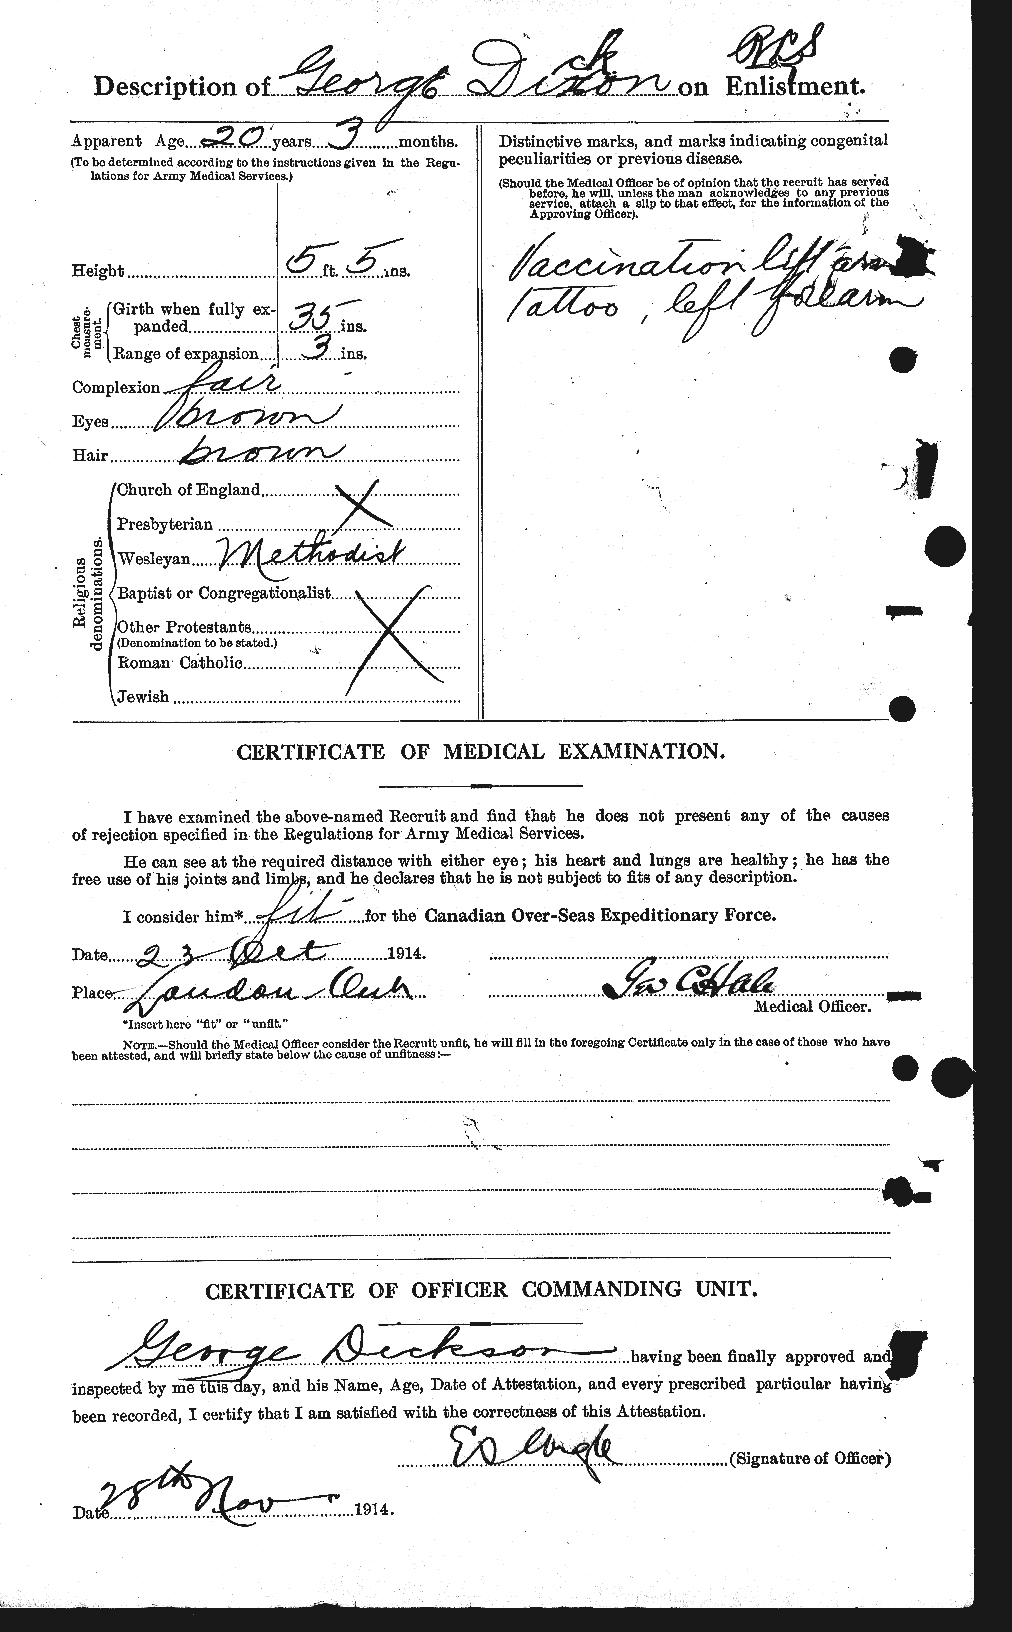 Description of George Dickson on Enlistment.
Apparent Age 20 years 3 months.
(To be determined according to the instructions given in the Regu-
lations for Army Medical Services.)
Height 5 ft. 5 ins.
Chest measure-
ment.
Girth when fully ex-
panded 35 ins.
Range of expansion 3 ins.
Complexion fair
Eyes brown
Hair brown
Religious
denominations.
Church of England
Presbyterian
Wesleyan Methodist
Baptist or Congregationalist
Other Protestants
(Denomination to be stated.)
Roman Catholic
Jewish
Distinctive marks, and marks indicating congenital
peculiarities or previous disease.
(Should the Medical Officer be of opinion that the recruit has served
before, he will, unless the man acknowledges to any previous
service, attach a slip to that effect, for the information of the
Approving Officer).
Vaccination left arm
Tattoo, left forearm
CERTIFICATE OF MEDICAL EXAMINATION.
I have examined the above-named Recruit and find that he does not present any of the causes
of rejection specified in the Regulations for Army Medical Services.
He can see at the required distance with either eye; his heart and lungs are healthy; he has the
free use of his joints and limbs, and he declares that he is not subject to fits of any description.
I consider him* fit for the Canadian Over-Seas Expeditionary Force.
Date 23 Oct 1914.
Place London Ont
Geo C Hale
Medical Officer.
*Insert here "fit" or "unfit."
NOTE.—Should the Medical Officer consider the Recruit unfit, he will fill in the foregoing Certificate only in the case of those who have
been attested, and will briefly state below the cause of unfitness:—
CERTIFICATE OF OFFICER COMMANDING UNIT.
George Dickson having been finally approved and
inspected by me this day, and his Name, Age, Date of Attestation, and every prescribed particular having
been recorded, I certify that I am satisfied with the correctness of this Attestation.
(Signature of Officer)
Date 28th Nov 1914.